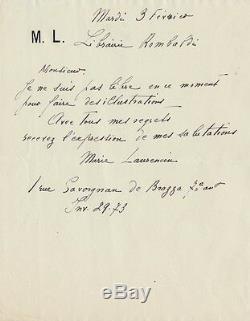 Mardi 3 Février
M. L.
Librairie Rombaldi
Monsieur
Je ne suis pas libre en ce moment
pour faire des illustrations
Avec tous mes regrets
recevez l'expression de mes salutations
Marie Laurencin
1 rue Savorgnan de Brazza 7e arr
Inv. 29-73